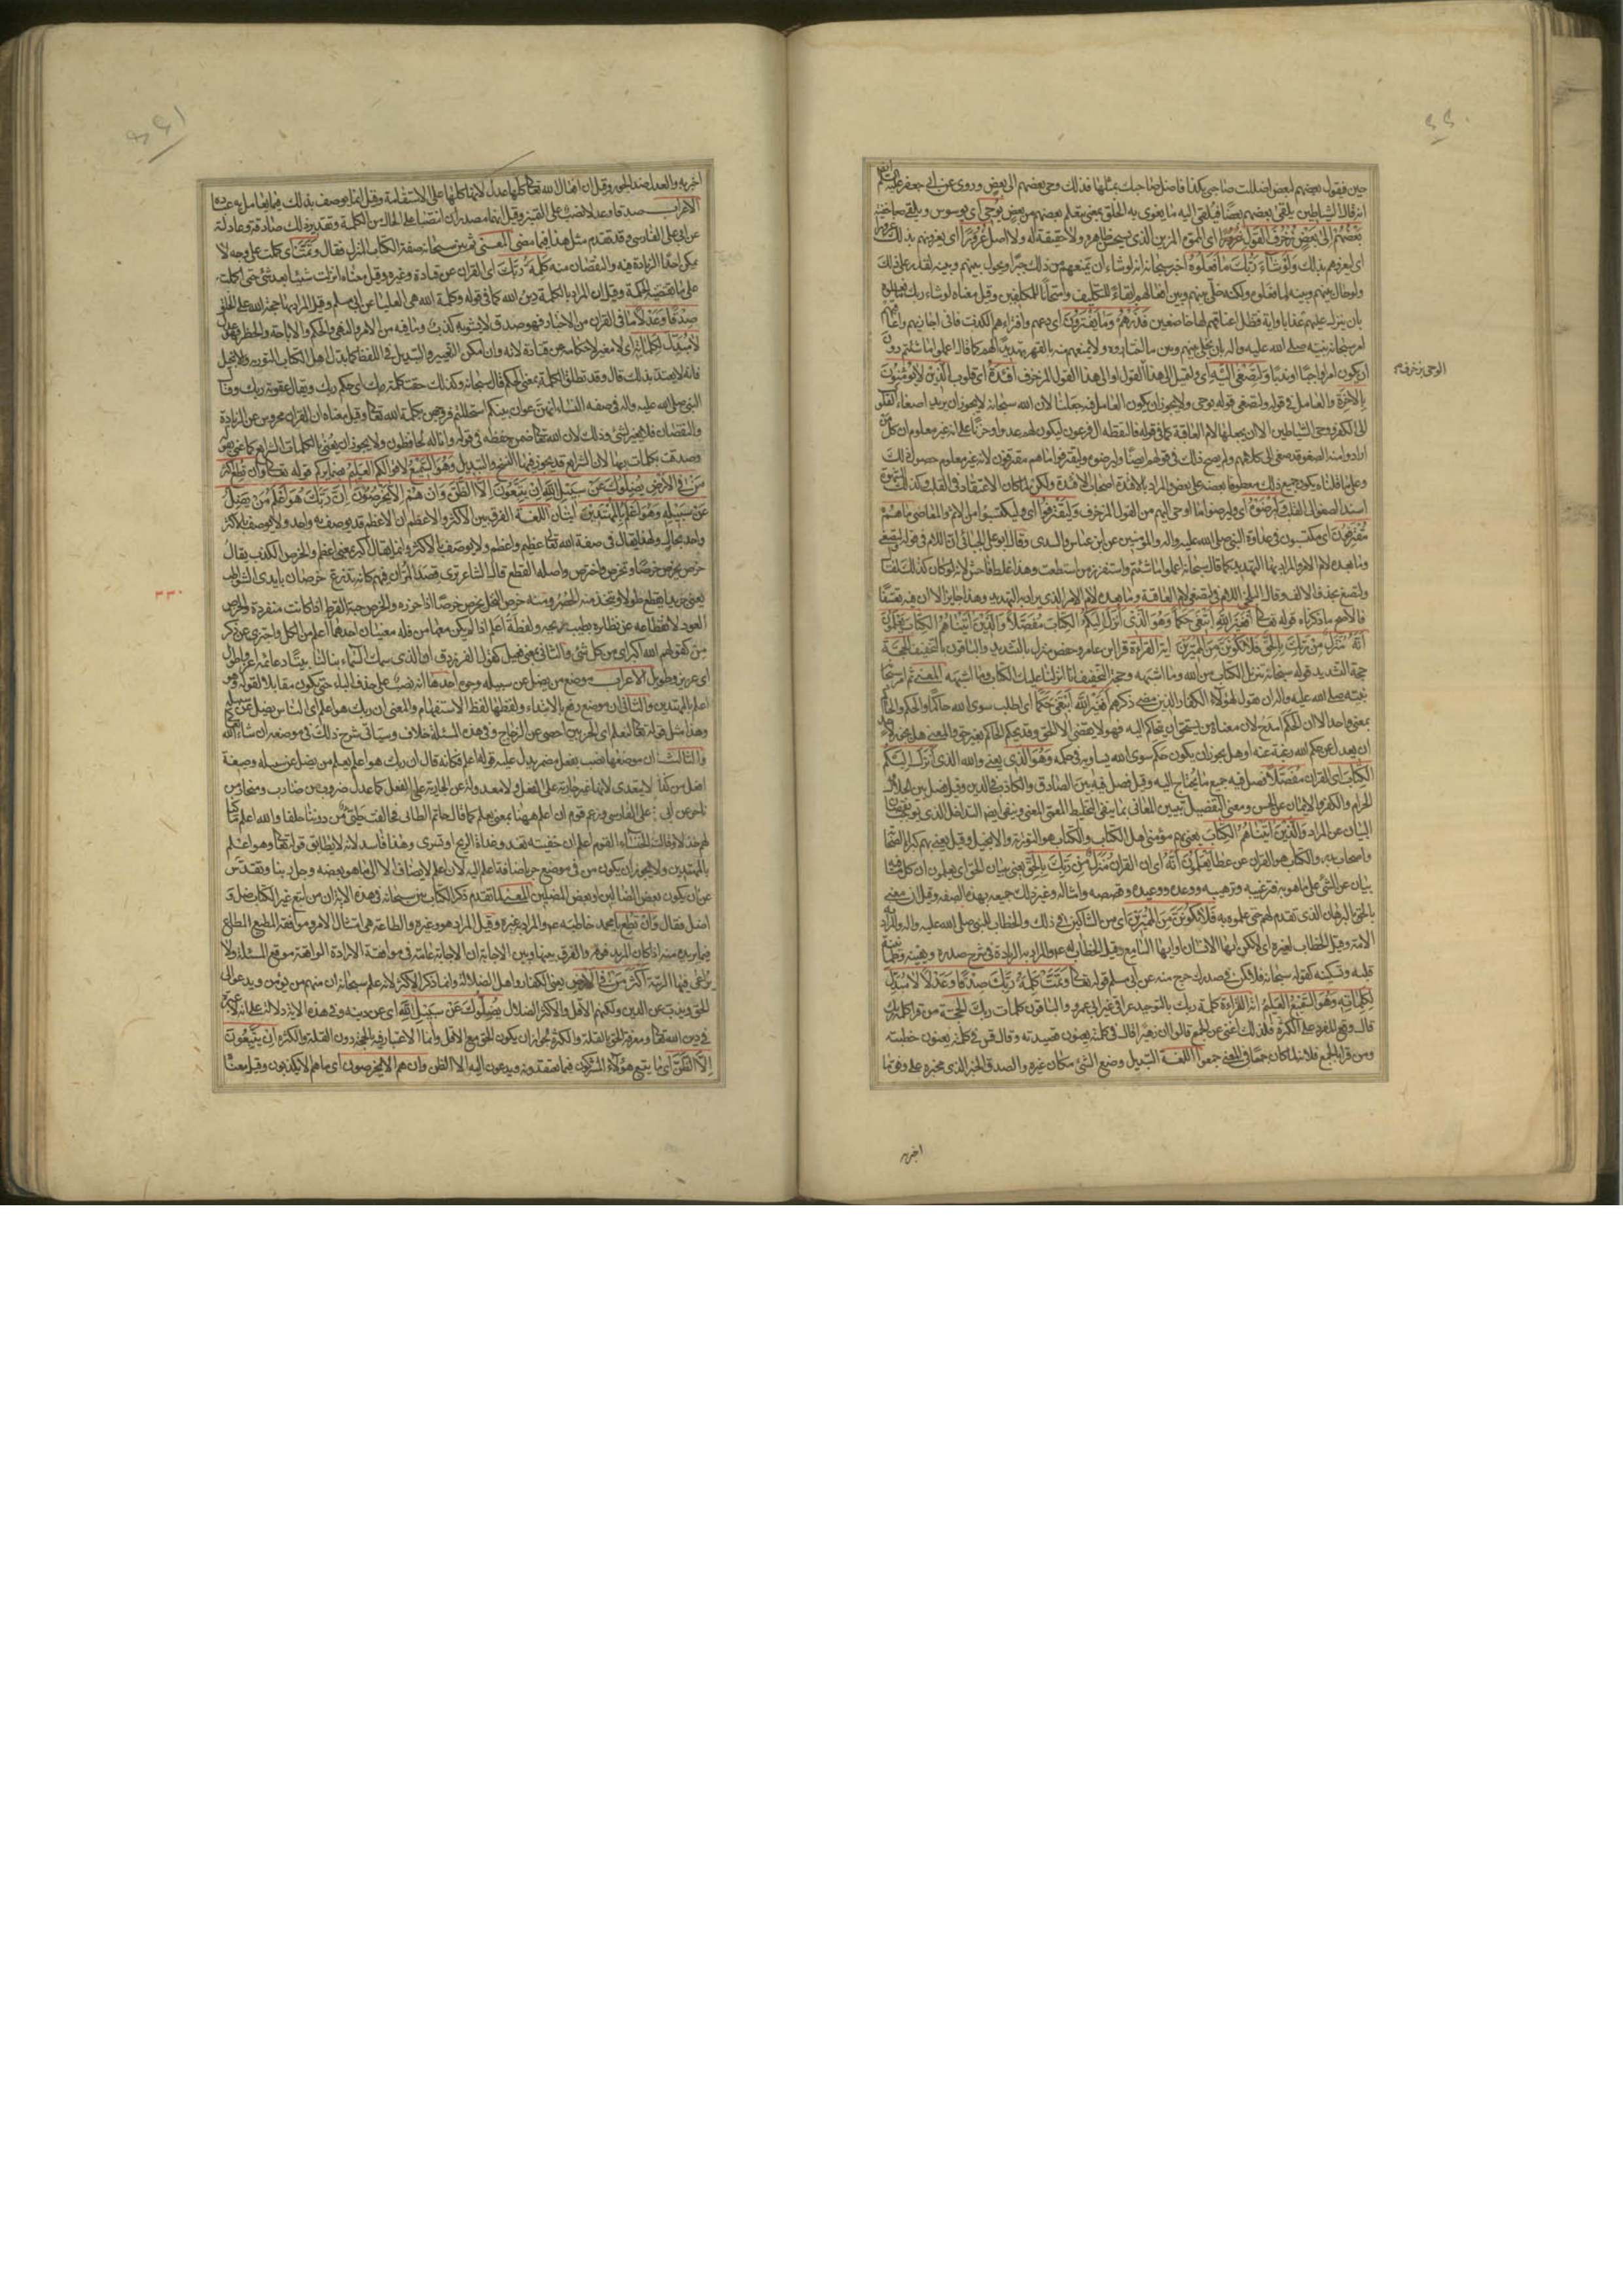 حين فيقول بعضهم لبعض اضللت صاحبي بكذا فاضل صاحبك بمثلها فذلك وحي بعضهم الى بعض وروى عن ابي جعفر عليه السلم
انه قال ان الشياطين يلقى بعضهم بعضا فيلقى اليه ما يغوى به الخلق حتى يتعلم بعضهم من بعض يوحى اى يوسوس ويلقى خفية
بعضهم الى بعض زخرف القول غرورا اى المموه المزين الذى يستحسن ظاهره ولا حقيقة له ولا اصل غرورا اى يغرونهم بذلك غرورا
اى ليغروهم بذلك ولو شاء ربك ما فعلوه اخبر سبحانه انه لو شاء ان يمنعهم من ذلك جبرا ويحول بينهم وبينه لقدر على ذلك
ولو حال بينهم وبينه لما فعلوه ولكنه خلى بينهم وبين افعالهم ابقاء للتكليف وامتحانا للمكلفين وقيل معناه لو شاء ربك ما فعلوه
بان ينزل عليهم عذابا او اية فتظل اعناقهم لها خاضعين فذرهم وما يفترون اى دعهم وافتراءهم الكذب فانى اجازيهم واعاقبهم
امر سبحانه نبيه صلى الله عليه واله بان يخلى بينهم وبين ما اختاروه ولا يمنعهم منه بالقهر تهديدا لهم كما قال اعملوا ما شئتم دون
ان يكون امرا واجبا او ندبا ولتصغى اليه اى ولتميل الى هذا القول او الى هذا القول المزخرف افئدة اى قلوب الذين لا يؤمنون
بالاخرة والعامل فى قوله ولتصغى قوله يوحى ولا يجوز ان يكون العامل فيه جعلنا لان الله سبحانه لا يجوز ان يريد اصغاء القلوب
الى الكفر ووحى الشياطين الا ان يجعلها لام العاقبة كما فى قوله فالتقطه ال فرعون ليكون لهم عدوا وحزنا على انه غير معلوم ان كل من
ارادوا منه الصغو قد صغى الى كلامهم ولم يصح ذلك فى قوله ايضا وليرضوه وليقترفوا ما هم مقترفون لانه غير معلوم حصول ذلك
وعلى ما قلناه يكون جميع ذلك معطوفا بعضه على بعض والمراد بالافئدة اصحاب الافئدة ولكن لما كان الاعتقاد فى القلب وكذلك الشهوة
اسند الصغو الى القلب وليرضوه اى وليرضوا ما اوحى اليهم من القول المزخرف وليقترفوا اى وليكتسبوا من الاثم والمعاصى ما هم
مقترفون اى مكتسبون فى عداوة النبى صلى الله عليه واله والمؤمنين عن ابن عباس والسدى وقال ابو على الجبائى ان اللام فى قوله ولتصغى
وما بعده لام الامر والمراد بها التهديد كما قال سبحانه اعملوا ما شئتم واستفزز من استطعت وهذا غلط فاحش لانه لو كان كذلك لقال
ولتصغ بحذف الالف وقال البلخى اللام فى ولتصغى لام العاقبة وما بعده لام الامر الذى يراد به التهديد وهذا جائز الا ان فيه تعسفا
فالاصح ما ذكرناه قوله تعالى افغير الله ابتغى حكما وهو الذى انزل اليكم الكتاب مفصلا والذين اتيناهم الكتاب يعلمون
انه منزل من ربك بالحق فلا تكونن من الممترين اية القراءة قرا ابن عامر وحفص منزل بالتشديد والباقون بالتخفيف الحجة
حجة التشديد قوله سبحانه تنزيل الكتاب من الله وما اشبهه وحجة التخفيف انا انزلنا عليك الكتاب وما اشبهه المعنى ثم امر سبحانه
نبيه صلى الله عليه واله ان يقول لهؤلاء الكفار الذين مضى ذكرهم افغير الله ابتغى حكما اى اطلب سوى الله حاكما والحكم والحاكم
بمعنى واحد الا ان الحكم امدح لان معناه من يستحق ان يتحاكم اليه فهو لا يقضى الا بالحق وقد يحكم الحاكم بغير حق والمعنى هل يجوز لاحد
ان يعدل عن حكم الله رغبة عنه او هل يجوز ان يكون حكم سوى الله يساويه فى حكمه وهو الذى يعنى والله الذى انزل اليكم
الكتاب اى القران مفصلا فصل فيه جميع ما يحتاج اليه وقيل فصل فيه بين الصادق والكاذب فى الدين وقيل فصل بين الحلال
الحرام والكفر والايمان عن الحسن ومعنى التفصيل تبيين المعانى بما ينفى التخليط المعمى للمعنى وينفى ايضا التداخل الذى يوجب نقصان
البيان عن المراد والذين اتيناهم الكتاب يعنى بهم مؤمنى اهل الكتاب والكتاب هو التورية والانجيل وقيل يعنى بهم كبراء الصحابة
واصحاب بدر والكتاب هو القران عن عطا يعلمون انه اى ان القران منزل من ربك بالحق يعنى ببيان الحق اى يعلمون ان كل ما فيه
بيان عن الشئ على ما هو به فترغيبه وترهيبه ووعده ووعيده وقصصه وامثاله وغير ذلك جميعه بهذه الصفة وقيل ان معنى
بالحق بالبرهان الذى تقدم لهم حتى علموه به فلا تكونن من الممترين اى من الشاكين فى ذلك والخطاب للنبى صلى الله عليه واله والمراد به
الامة وقيل الخطاب لغيره اى لا تكن ايها الانسان او ايها السامع وقيل الخطاب له عم والمراد به الزيادة فى شرح صدره ويقينه وطمانينة
قلبه وتسكينه كقوله سبحانه فلا يكن فى صدرك حرج منه عن ابى مسلم قوله تعالى وتمت كلمة ربك صدقا وعدلا لا مبدل
لكلماته وهو السميع العليم اية القراءة كلمة ربك بالتوحيد عراقى غير ابى عمرو والباقون كلمات ربك الحجة من قرا كلمة ربك
قال وقع المفرد على الكثرة فلذلك اغنى عن الجمع قالوا ان زهيرا قال فى كلمته يعنون قصيدته وقال قس فى كلمته يعنون خطبته
ومن قرا بالجمع فلانه لما كان جمعا فى المعنى جمعوا اللغة التبديل وضع الشئ مكان غيره والصدق الخبر الذى مخبره على وفق ما
اخبر به
اخبر به والعدل ضد الجور وقيل ان افعال الله تعالى كلها عدل لانها كلها على الاستقامة وقيل انما يوصف بذلك فيما يعامل به عباده
الاعراب صدقا وعدلا نصب على التمييز وقيل انهما مصدران انتصبا على الحال من الكلمة وتقديره ذلك صادقة وعادلة
عن ابى على الفارسى وقد تقدم مثل هذا فيما مضى المعنى ثم بين سبحانه صفة الكتاب المنزل فقال وتمت اى كملت على وجه لا
يمكن احدا الزيادة فيه والنقصان منه كلمة ربك اى القران عن قتادة وغيره وقيل معناه انزلت شيئا بعد شئ حتى كملت
على ما تقتضيه الحكمة وقيل ان المراد بالكلمة دين الله كما فى قوله وكلمة الله هى العليا عن ابى مسلم وقيل المراد بها حجة الله على الخلق
صدقا وعدلا ما فى القران من الاخبار فهو صدق لا يشوبه كذب وما فيه من الامر والنهى والحكم والاباحة والحظر فهو عدل
لا مبدل لكلماته اى لا مغير لاحكامه عن قتادة لانه وان امكن التغيير والتبديل فى اللفظ كما بدل اهل الكتاب التورية والانجيل
فانه لا يعتد بذلك قال وقد تطلق الكلمة بمعنى الحكم قال سبحانه وكذلك حقت كلمة ربك اى حكم ربك ويقال عقوبة ربك وقال
النبى صلى الله عليه واله فى صفة النساء انهن عوان عندكم استحللتم فروجهن بكلمة الله تعالى وقيل معناه ان القران محروس عن الزيادة
والنقصان فلا مغير لشئ وذلك لان الله تعالى ضمن حفظه فى قوله وانا له لحافظون ولا يجوز ان يعنى بالكلمات الشرايع كما عنى بقوله
وصدقت بكلمات ربها لان الشرايع قد يجوز فيها النسخ والتبديل وهو السميع لاقوالكم العليم بضمائركم قوله تعالى وان تطع اكثر
من فى الارض يضلوك عن سبيل الله ان يتبعون الا الظن وان هم الا يخرصون ان ربك هو اعلم من يضل
عن سبيله وهو اعلم بالمهتدين ايتان اللغة الفرق بين الاكثر والاعظم ان الاعظم قد يوصف به واحد ولا يوصف بالاكثر
واحد بحال ولهذا يقال فى صفة الله تعالى عظيم واعظم ولا يوصف بالاكثر وانما يقال اكبر بمعنى اعظم والخرص الكذب يقال
خرص يخرص خرصا وتخرص واخترص واصله القطع قال الشاعر ترى قصد المران فيهم كانه تذرع خرصان بايدى الشواطب
يعنى جريدا يقطع طولا ويتخذ منه الحصر ومنه خرص النخل يخرص خرصا اذا حزره والخرص حبة القرط اذا كانت منفردة والخرص
العود لانقطاعه عن نظائره بطيب ريحه ولفظة اعلم اذا لم يكن معها من فله معنيان احدهما اعلم من الكل واجتزى عن ذكر
من كقولهم الله اكبر اى من كل شئ والثانى بمعنى فعيل كقول الفرزدق ان الذى سمك السماء بنا لنا بيتا دعائمه اعز واطول
اى عزيز وطويل الاعراب موضع من يضل عن سبيله وجوه احدها انه نصب على حذف الباء حتى يكون مقابلا لقوله وهو
اعلم بالمهتدين والثانى ان موضع رفع بالابتداء ولفظها لفظ الاستفهام والمعنى ان ربك هو اعلم اى الناس يضل عن سبيله
وهذا مثل قوله تعالى لنعلم اى الحزبين احصى عن الزجاج وفى هذه المسئلة خلاف وسياتى شرح ذلك فى موضعه ان شاء الله تعالى
والثالث ان موضعها نصب بفعل مضمر يدل عليه قوله اعلم فكانه قال ان ربك هو اعلم يعلم من يضل عن سبيله وصيغة
افعل من كذا لا يتعدى لانها غير جارية على الفعل ولا معدولة عن الجارية على الفعل كما عدل ضروب من ضارب ومنحار من
ناحر عن ابى على الفارسى وزعم قوم ان اعلم ههنا بمعنى يعلم كما قال حاتم الطائى فحالفت طى من دوننا حلفا والله اعلم ما كنا
لهم خذلا وقالت الخنساء القوم اعلم ان جفنته تغدو غداة الريح او تسرى وهذا فاسد لانه لا يطابق قوله تعالى وهو اعلم
بالمهتدين ولا يجوز ان يكون من فى موضع جر باضافة اعلم اليه لان اعلم لا يضاف الا الى ما هو بعضه وجل ربنا وتقدس
عن ان يكون بعض الضالين او بعض المضلين المعنى لما تقدم ذكر الكتاب بين سبحانه فى هذه الاية ان من اتبع غير الكتاب ضل و
اضل فقال وان تطع يا محمد خاطبه عم والمراد غيره وقيل المراد هو وغيره والطاعة هى امتثال الامر وموافقة المطيع المطاع
فيما يريده منه اذا كان المريد فوقه والفرق بينها وبين الاجابة ان الاجابة عامة فى موافقة الارادة الواقعة موقع المسئلة ولا
يراعى فيها الرتبة اكثر من فى الارض يعنى الكفار واهل الضلالة وانما ذكر الاكثر لانه علم سبحانه ان منهم من يؤمن ويدعو الى
الحق ويذب عن الدين ولكنهم الاقل والاكثر الضلال يضلوك عن سبيل الله اى عن دينه وفى هذه الاية دلالة على انه لا عبرة
فى دين الله تعالى ومعرفة الحق بالقلة والكثرة لجواز ان يكون الحق مع الاقل وانما الاعتبار فيه بالحجة دون القلة والكثرة ان يتبعون
الا الظن اى ما يتبع هؤلاء المشركون فيما يعتقدونه ويدعون اليه الا الظن وان هم الا يخرصون اى ما هم الا يكذبون وقيل معناه